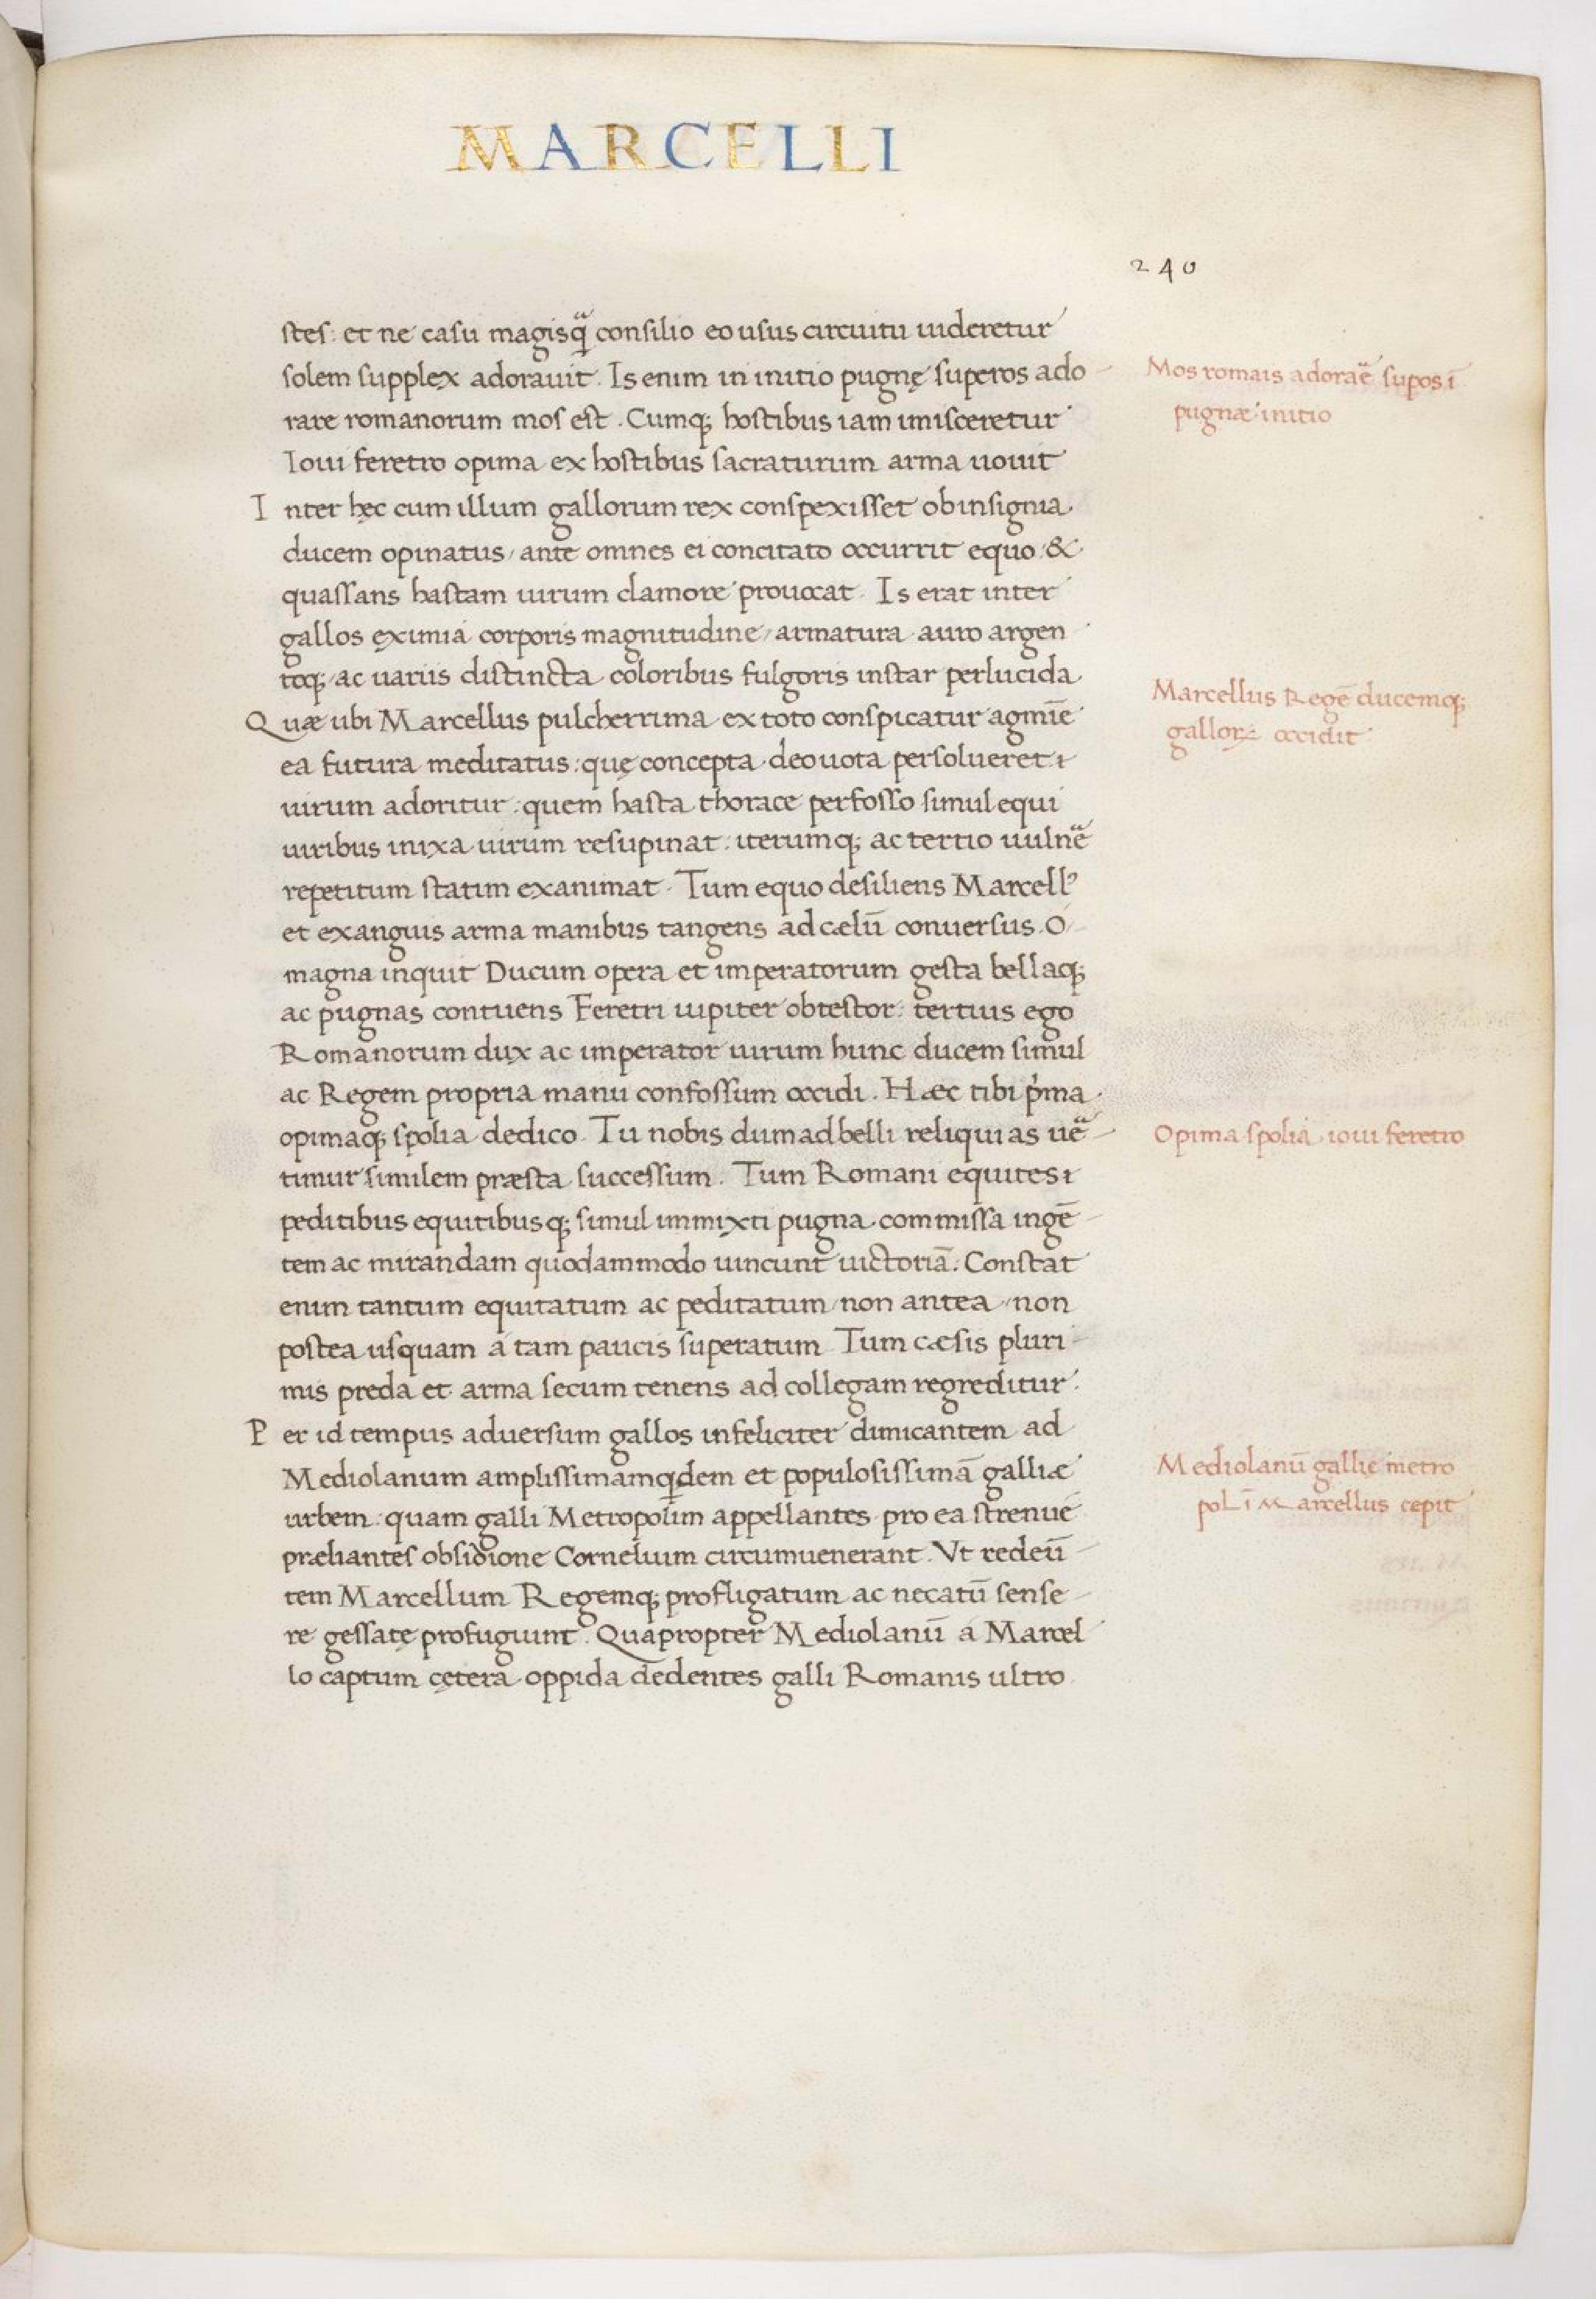 MARCELLI
240
stes: et ne casu magisq̃ consilio eo usus circuitu uideretur
solem supplex adorauit. Is enim in initio pugnę superos ado
rare romanorum mos est. Cumq; hostibus iam imisceretur
Ioui feretro opima ex hostibus sacraturum arma uouit
Inter hęc cum illum gallorum rex conspexisset ob insignia
ducem opinatus, ante omnes ei concitato occurrit equo: &
quassans hastam uirum clamore prouocat. Is erat inter
gallos eximia corporis magnitudine, armatura auro argen
toq; ac uariis distincta coloribus fulgoris instar perlucida
Quæ ubi Marcellus pulcherrima ex toto conspicatur agmīe
ea futura meditatus: quę concepta deo uota persolueret: ı
uirum adoritur: quem hasta thorace perfosso simul equi
uiribus inixa uirum resupinat: iterumq; ac tertio uulnẽ
repetitum statim exanimat. Tum equo desiliens Marcellꝰ
et exanguis arma manibus tangens ad cælū conuersus. O
magna inquit Ducum opera et imperatorum gesta bellaq;
ac pugnas contuens Feretri iupiter obtestor: tertius ego
Romanorum dux ac imperator uirum hunc ducem simul
ac Regem propria manu confossum occidi. Hæc tibi pͥma
opimaq; spolia dedico. Tu nobis dum ad belli reliquias uẽ
timur similem præsta successum. Tum Romani equites ı
peditibus equitibusq; simul immixti pugna commissa ingē
tem ac mirandam quodammodo uincunt uictoriā. Constat
enim tantum equitatum ac peditatum, non antea, non
postea usquam a tam paucis superatum. Tum cæsis pluri
mis preda et arma secum tenens ad collegam regreditur.
Per id tempus aduersum gallos infeliciter dimicantem ad
Mediolanum amplissimam qdem et populosissimā galliæ
urbem: quam galli Metropolim appellantes pro ea strenue
præliantes obsidione Cornelium circumuenerant. Vt redeū
tem Marcellum Regemq; profligatum ac necatū sense
re gessatę profugiunt. Quapropter Mediolanū a Marcel
lo captum cętera oppida dedentes galli Romanis ultro
Mos romais adoraẽ supos ī
pugnæ initio
Marcellus Regē ducemq;
galloꝝ occidit
Opima spolia ioui feretro
Mediolanū gallie metro
polī Marcellus cepit